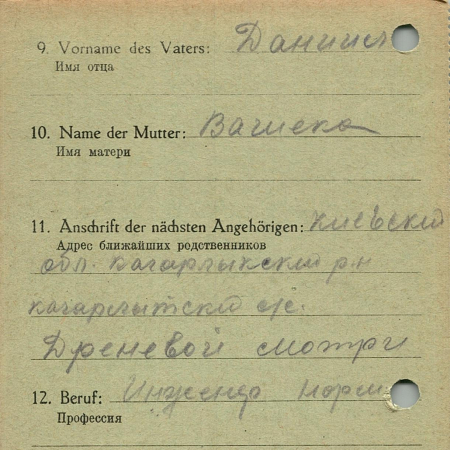 9. Vorname des Vaters: Даниил
Имя отца
10. Name der Mutter:
Имя матери
11. Anschrift der nächsten Angehörigen: Киевский
Адрес ближайших родственников
обл. Кагарлыкский р-н
Дреневой Мотри
12. Beruf: Инженер
Профессия